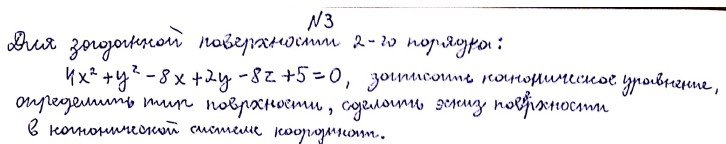 N3
Для заданной поверхности 2-го порядка:
4x² + y² - 8x + 2y - 8z + 5 = 0, записать каноническое уравнение,
определить тип поврхности, сделать эскиз поверхности
в канонической системе координат.